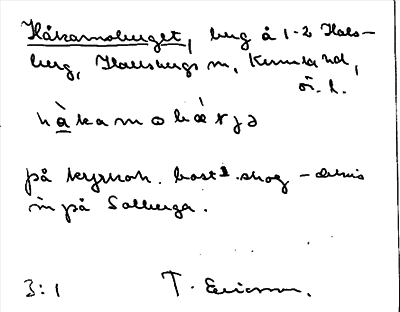 Håkansberget, berg å 1-2 Hals-
berg, Hallsbergs sn, Kumla hd,
ör. l.
hàkam bæ̀rjə
på kyrkoh. bost. skog – delvis
in på Solberga.
3:1 T. Ericsson.